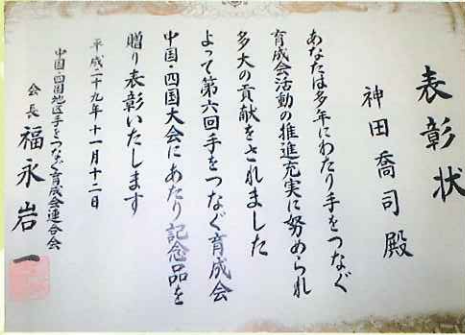 表彰状
神田喬司殿
あなたは多年にわたり手をつなぐ
育成会活動の推進充実に努められ
多大の貢献をされました
よって第六回手をつなぐ育成会
中国・四国大会にあたり記念品を
贈り表彰いたします
平成二十九年十一月十二日
中国・四国地区手をつなぐ育成会連合会
会長 福永岩一